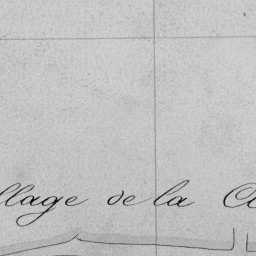 llage de la